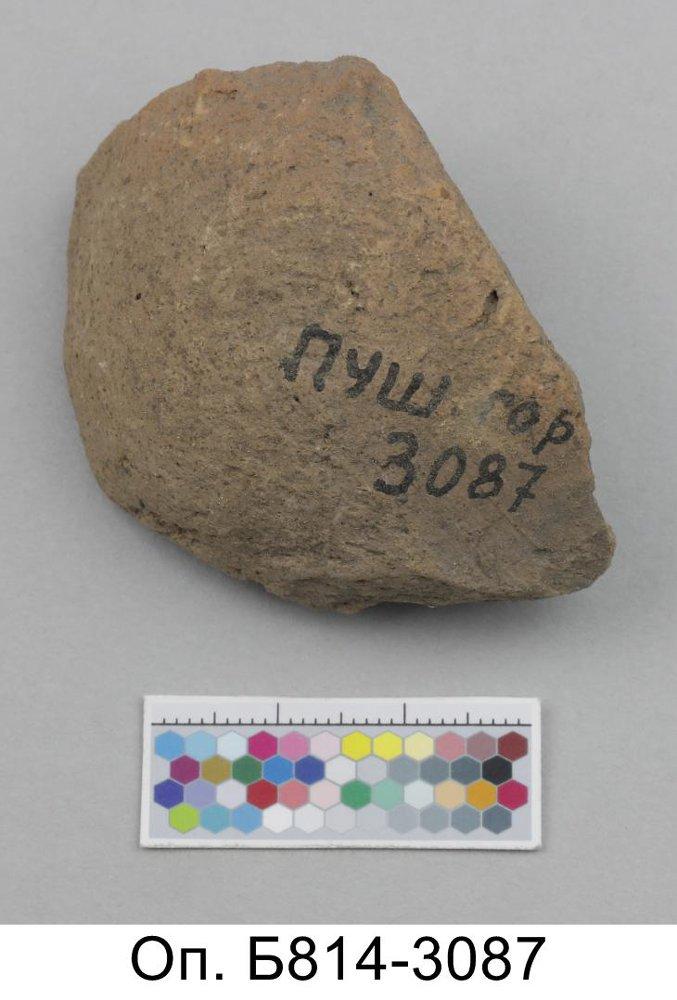 ПУШ гор
3087
Оп. Б814-3087